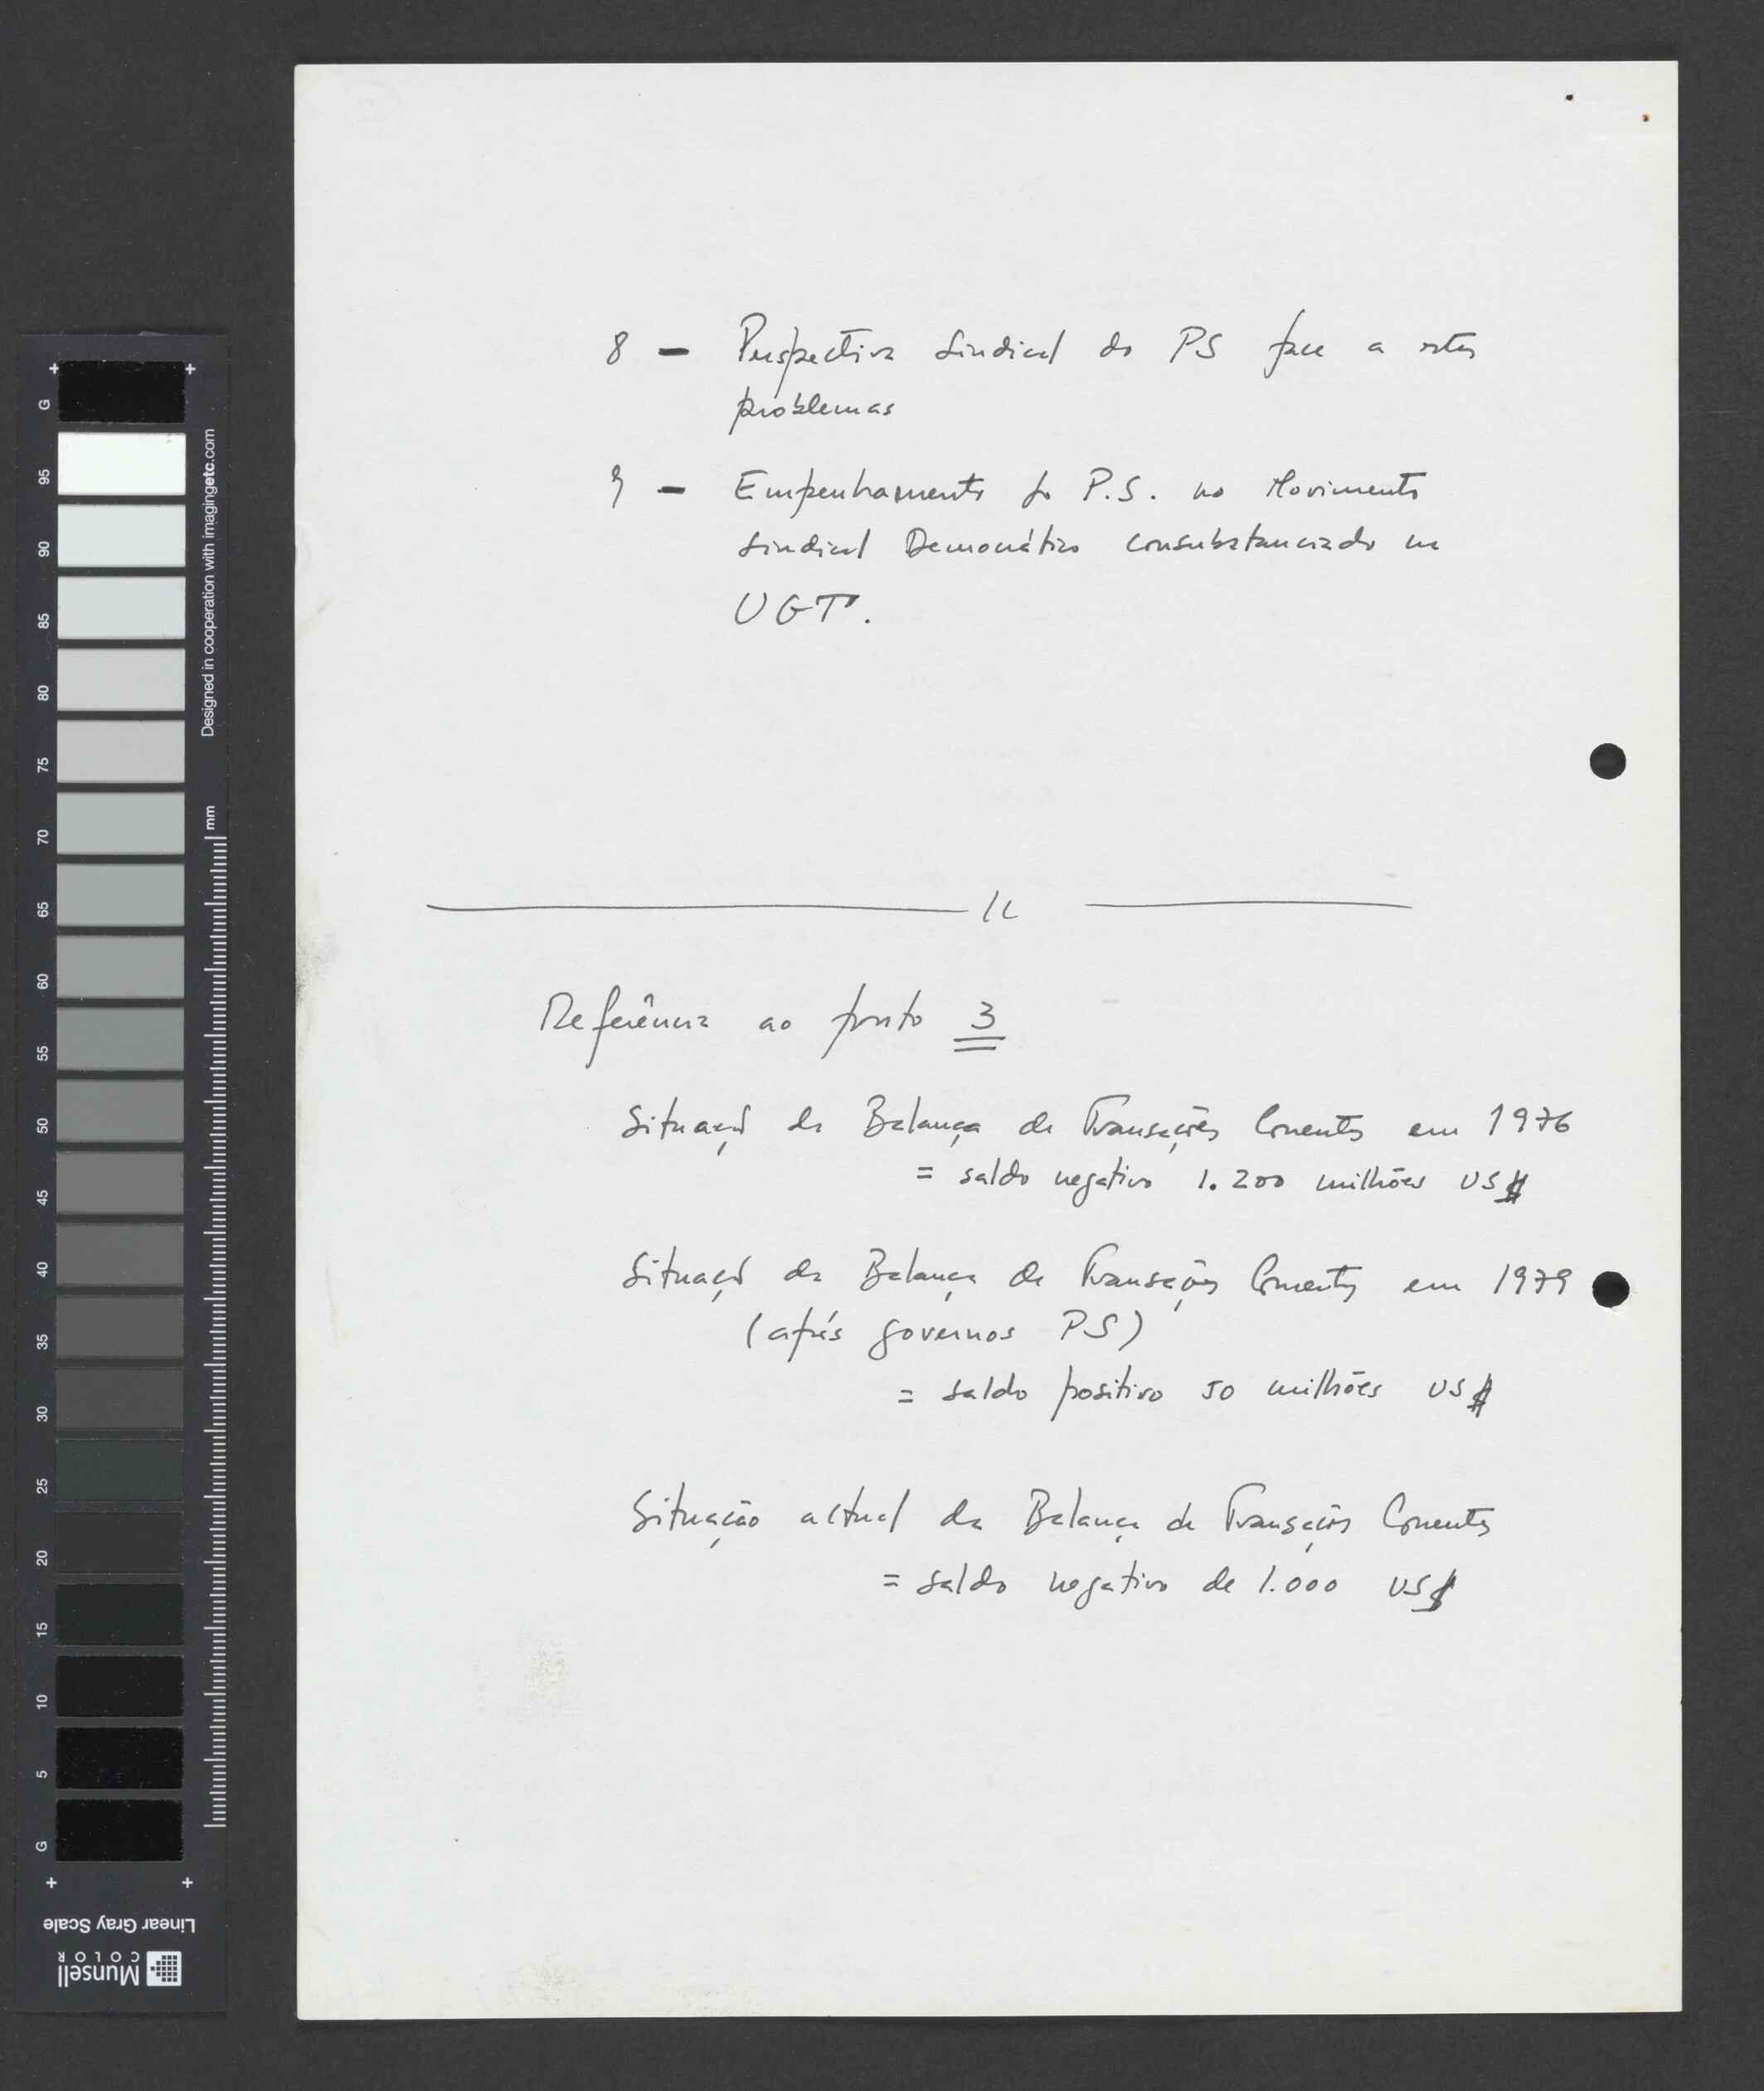 8 - Perspectiva Sindical do PS face a estes
problemas
9 - Empenhamento do P.S. no Movimento
Sindical Democrático consubstanciado na
UGT.
Referência ao ponto 3
Situação da Balança de Transações Correntes em 1976
= saldo negativo 1.200 milhões US$
Situação da Balança de Transações Correntes em 1979
(após governos PS)
= saldo positivo 50 milhões US$
Situação actual da Balança de Transações Correntes
= saldo negativo de 1.000 US$
G
95
90
85
80
75
70
65
60
55
50
45
40
35
30
25
20
15
10
5
G
Designed in cooperation with imagingetc.com
mm
Linear Gray Scale
Munsell
COLOR